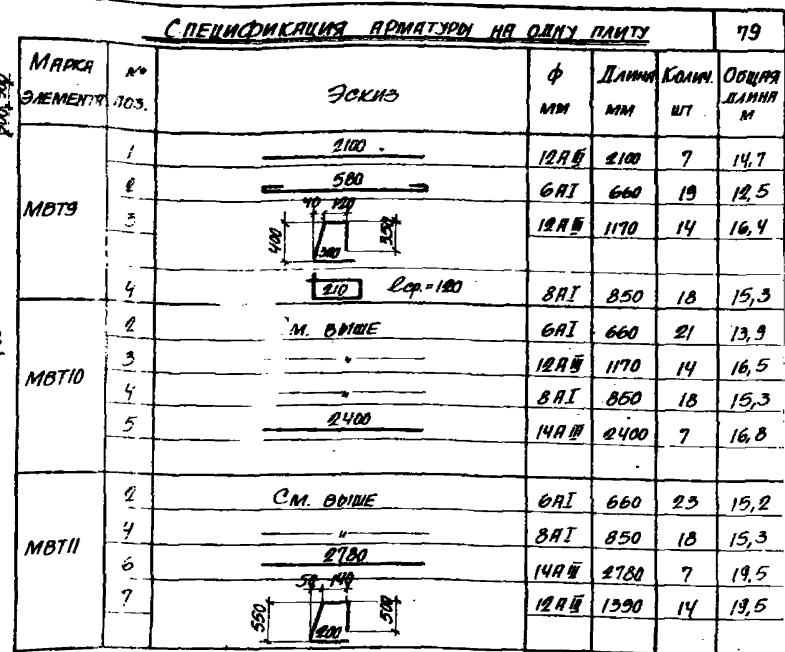 СПЕЦИФИКАЦИЯ АРМАТУРЫ НА ОДНУ ПЛИТУ 79
МАРКА ЭЛЕМЕНТА № ПОЗ. ЭСКИЗ ф ММ ДЛИНА ММ КОЛИЧ. ШТ ОБЩАЯ ДЛИНА М
МВТ9
1 2100 12АIII 2100 7 14,7
2 580 6АI 660 19 12,5
3 40 120 400 350 300 12АIII 1170 14 16,4
4 210 lср.=120 8АI 850 18 15,3
МВТ10
2 СМ. ВЫШЕ 6АI 660 21 13,9
3 — " — 12АIII 1170 14 16,5
4 — " — 8АI 850 18 15,3
5 2400 14АIII 2400 7 16,8
МВТ11
2 СМ. ВЫШЕ 6АI 660 23 15,2
4 — " — 8АI 850 18 15,3
6 2780 14АIII 2780 7 19,5
7 50 140 550 500 200 12АIII 1390 14 19,5